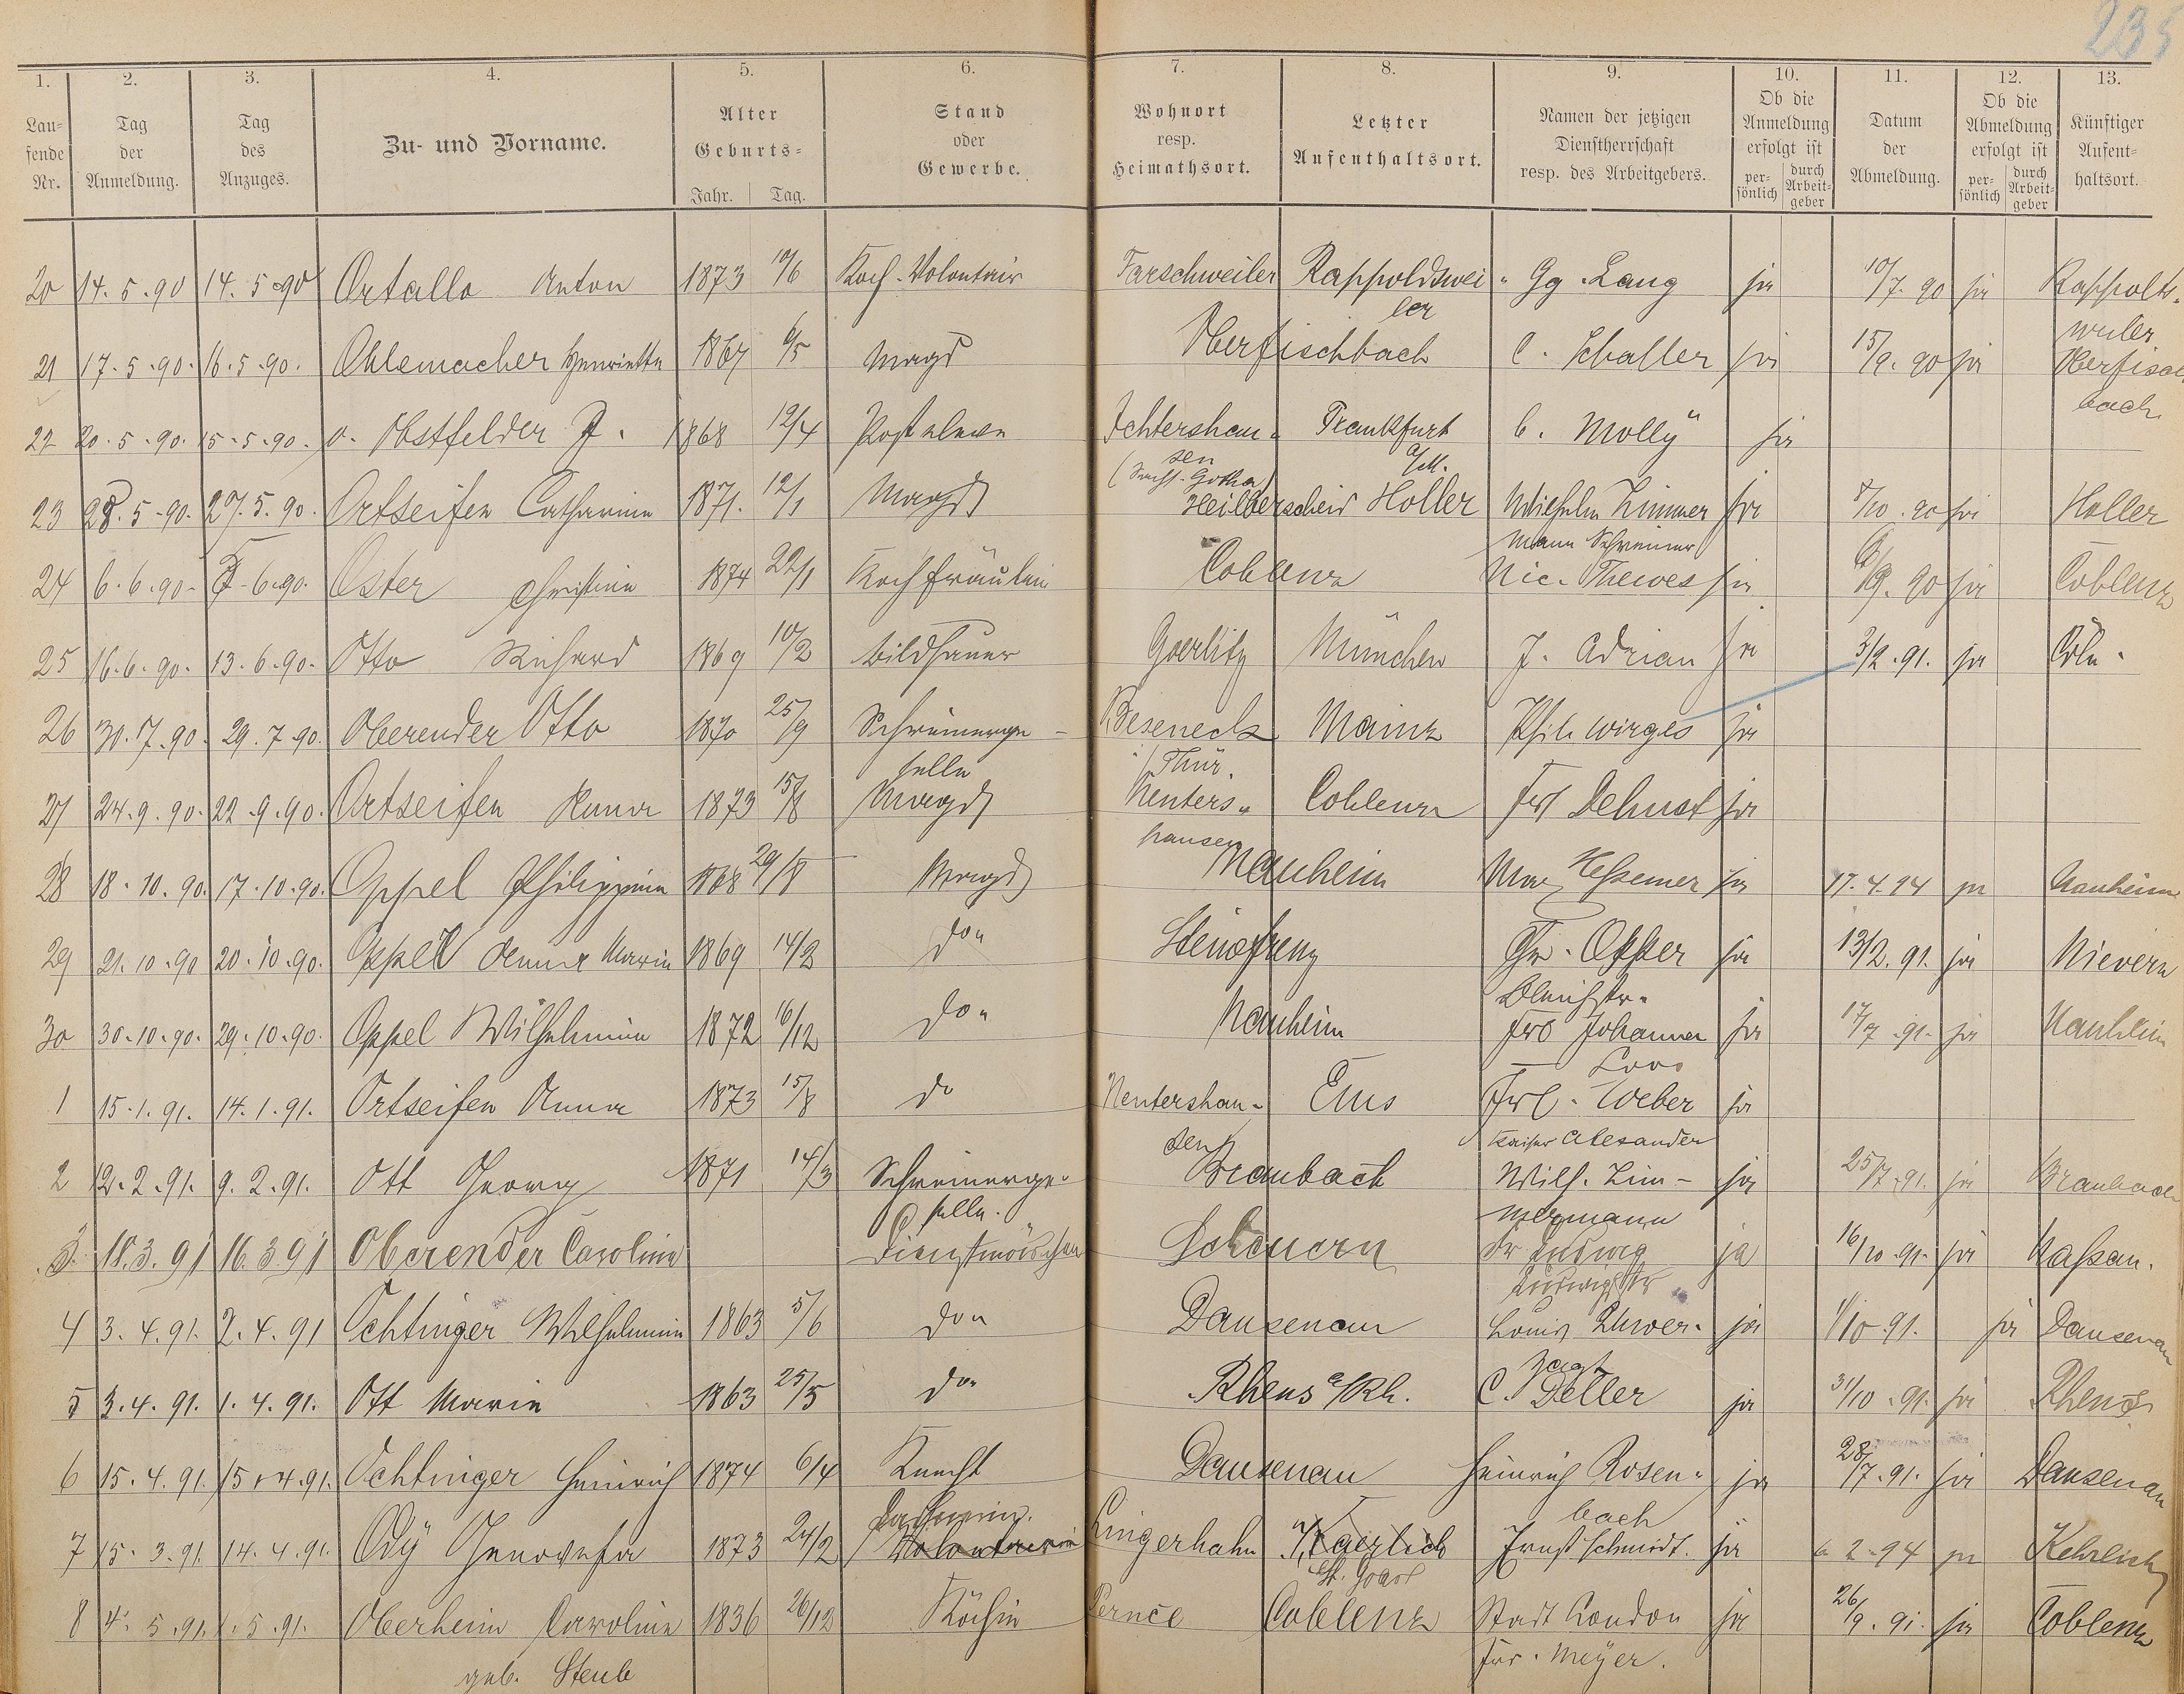 235
1. 2. 3. 4. 5. 6. 7. 8. 9. 10. 11. 12. 13.
Lau=
fende
Nr.
Tag
der
Anmeldung.
Tag
des
Anzuges.
Zu- und Vorname.
Alter
Geburts=
Jahr. Tag.
Stand
oder
Gewerbe.
Wohnort
resp.
Heimathsort.
Letzter
Aufenthaltsort.
Namen der jetzigen
Dienstherrschaft
resp. des Arbeitgebers.
Ob die
Anmeldung
erfolgt ist
per=
sönlich
durch
Arbeit=
geber
Datum
der
Abmeldung.
Ob die
Abmeldung
erfolgt ist
per=
sönlich
durch
Arbeit=
geber
Künftiger
Aufent=
haltsort.
20 14. 5. 90 14. 5. 90 Ortallo Anton 1873 10/6 Koch-Volontair Farschweiler Rappoldswei- Gg. Lang ja 10/7. 90 ja Rappolts-
ler weiler
21 17. 5. 90. 16. 5. 90. Ohlemacher Henriette 1867 6/5 Magd Oberfischbach C. Schaller ja 15/9. 90 ja Oberfisch
bach
22 20. 5. 90. 15. 5. 90. v. Obstfelder J. 1868 12/4 Posteleve Ichtershau- Frankfurt C. Molly ja
sen a/M.
(Sachs. Gotha)
23 28. 5. 90. 27. 5. 90. Ortseifen Catharina 1871. 12/1 Magd Heilberscheid Holler Wilhelm Zimmer ja 8/10. 90 ja Holler
mann Schreiner
24 6. 6. 90. 6. 90. Oster Christine 1874 22/1 Kochfräulein Coblenz Nic. Thewes ja 6/9. 90 ja Coblenz
25 16. 6. 90. 13. 6. 90. Otto Richard 1869 10/2 Bildhauer Goerlitz München J. Adrian ja 3/2. 91. ja Cöln.
26 30. 7. 90. 29. 7. 90. Oberender Otto 1870 25/9 Schreinerge- Beseneck Mainz Phil. Wirges ja
selle i/Thür.
27 24. 9. 90. 22. 9. 90. Ortseifen Anna 1873 15/8 Magd Nenters- Coblenz ja
hausen
28 18. 10. 90. 17. 10. 90. Oppel Philippine 1868 29/8 Magd Nauheim Hessemer ja 17. 4. 94 ja Nauheim
29 21. 10. 90 20. 10. 90. Oppel Anna Maria 1869 14/2 do. Steinefrenz Opper ja 13/2. 91. ja Nievern
Bleichstr.
30 30. 10. 90. 29. 10. 90. Oppel Wilhelmine 1872 16/12 do. Nauheim Johanna ja 17/7. 91. ja Nauheim
Loos
1 15. 1. 91. 14. 1. 91. Ortseifen Anna 1873 15/8 do Nentershau- Ems Frl. Weber ja
sen Kaiser Alexander
2 12. 2. 91. 9. 2. 91. Ott Georg 1871 14/3 Schreinerge- Braubach Wilh. Zim- ja 25/7. 91. ja Braubach
selle. mermann
3. 18. 3. 91 16. 3. 91 Oberender Caroline Dienstmädchen Scheuern Dr Ludwig ja 16/10. 91. ja Nassau.
Ludwigstr
4 3. 4. 91. 2. 4. 91 Ochtinger Wilhelmine 1863 5/6 do. Dausenau Louis Zhwer- ja 1/10. 91. ja Dausenau
5 3. 4. 91. 1. 4. 91. Ott Marie 1863 25/5 do. Rhens a/Rh. C. Deller ja 31/10. 91. ja Rhens
6 15. 4. 91. 15. 4. 91. Ochtinger Heinrich 1874 6/4 Knecht Dausenau Heinrich Rosen- ja 28/7. 91. ja Dausenau
bach
7 15. 3. 91. 14. 4. 91. Ody Genovefa 1873 24/2 Volontairin Lingerhahn Kaerlich Ernst Schmidt. ja 6. 2. 94 ja Kehrlich
St. Goar
8 4. 5. 91. 1. 5. 91. Oberheim Caroline 1836 26/12 Köchin Coblenz Stadt London ja 26/9. 91. ja Coblenz
geb. Steub Meyer.